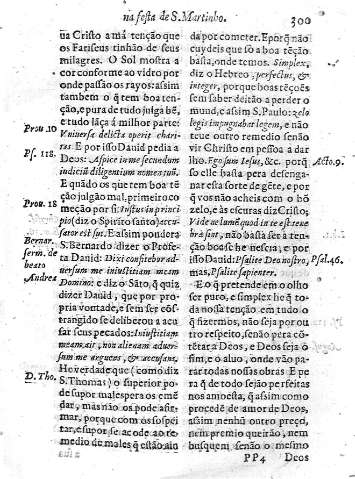 na festa de S. Martinho.
300
ua Cristo a má tenção que
os Fariseus tinhão de seus
milagres. O Sol mostra a
cor conforme ao vidro por
onde passão os rayos: assim
tambem o q̃ tem boa ten-
ção, e pura de tudo julga bẽ,
e tudo lāça á milhor parte:
Vniuersa delicta operit chari-
tas. E por isso Dauid pedia a
Deos: Aspice in me secundum
iudiciū diligentium nomen tuū.
E quãdo os que tem boa tẽ
ção julgão mal, primeiro co
meção por si: Iustus in princi-
pio (diz o Spirito santo) accu-
sator est sui. E assim pondera
S. Bernardo dizer o Profe-
ta Dauid: Dixi confitebor ad-
uersum me iniustitiam meam
Domino: e diz o Sãto, q̃ quiz
dizer Dauid, que por pro-
pria vontade, e sem ser cõs-
trangido se deliberou a acu-
sar seus pecados: Iniustitiam
meam, ait, non alienam aduer-
sum me arguens, & accusans.
He verdade que (como diz
S. Thomas) o superior po-
de supor mal espera os eme
dar, mas não os pode afir-
mar, porque com os sospei
tar, e supor se acode ao re-
medio de males q̃ estão aiu
Prou. 10
Ps. 118.
Prou. 18
Bernar.
serm. de
beato
Andrea
D. Tho.
da por cometer. E porq̃ não
cuydeis que só a boa tẽção
basta, onde temos. Simplex,
diz o Hebreo, perfectus, &
integer, porque boas tẽções
sem saber deitão a perder o
mund, e assim S. Paulo: zelo
legis impugnabat legem, e não
teue outro remedio senão
vir Christo em pessoa a dar
lho. Ego sum Iesus, &c. porq̃
só elle basta pera desenga-
nar esta sorte de gẽte, e por
q̃ vos não acheis com o bõ
zelo, e às escuras diz Christo;
Vide ne lumē quod in te est tene
bræ sint, não basta ser a ten-
ção boa se he nescia, e por
isso Dauid: Psalite Deo nostro,
mas, Psalite sapienter.
E o q̃ pretende em o olho
ser puro, e simplex he q̃ to
da nossa tenção em tudo o
q̃ fizermos, não seja por ou
tro respeito, senão pera cõ
tẽtar a Deos, e Deos seja o
fim, e o aluo, onde vão pa-
rar todas nossas obras. E pe
ra q̃ de todo sejão perfeitas
nos amoesta, q̃ assim como
procedẽ de amor de Deos,
assim nenhũ outro preço,
nem premio queirão, nem
busquem senão o mesmo
Acto. 9.
Psal. 46.
PP4 Deos